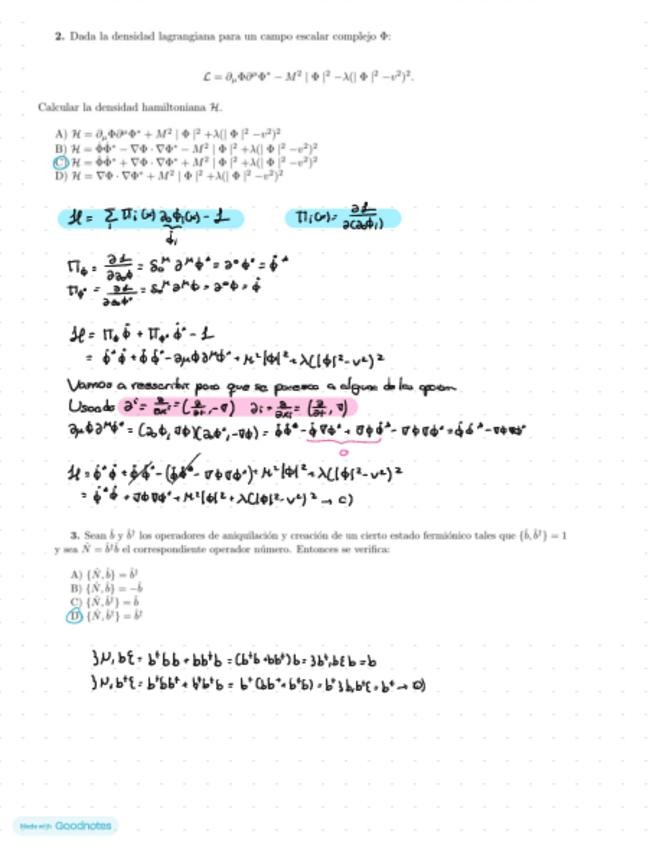 2. Dada la densidad lagrangiana para un campo escalar complejo Φ:
ℒ = ∂_μΦ∂^μΦ* − M² | Φ |² −λ(| Φ |² −v²)².
Calcular la densidad hamiltoniana ℋ.
A) ℋ = ∂_μΦ∂^μΦ* + M² | Φ |² +λ(| Φ |² −v²)²
B) ℋ = Φ̇Φ̇* − ∇Φ · ∇Φ* − M² | Φ |² +λ(| Φ |² −v²)²
C) ℋ = Φ̇Φ̇* + ∇Φ · ∇Φ* + M² | Φ |² +λ(| Φ |² −v²)²
D) ℋ = ∇Φ · ∇Φ* + M² | Φ |² +λ(| Φ |² −v²)²
ℋ = Σ_i Π_i(x) ∂₀ϕ_i(x) − ℒ Π_i(x) = ∂ℒ/∂(∂₀ϕ_i)
ϕ̇_i
Π_ϕ = ∂ℒ/∂∂₀ϕ = δ₀^μ ∂^μϕ* = ∂⁰ϕ* = ϕ̇*
Π_ϕ* = ∂ℒ/∂∂₀ϕ* = δ₀^μ ∂^μϕ = ∂⁰ϕ = ϕ̇
ℋ = Π_ϕ ϕ̇ + Π_ϕ* ϕ̇* − ℒ
= ϕ̇*ϕ̇ + ϕ̇ϕ̇* − ∂_μϕ∂^μϕ* + M²|ϕ|² + λ(|ϕ|² − v²)²
Vamos a reescribir para que se parezca a alguna de las opcion.
Usando ∂^i = ∂/∂x^i = (∂/∂t, −∇) ∂_i = ∂/∂x_i = (∂/∂t, ∇)
∂_μϕ∂^μϕ* = (∂₀ϕ, ∇ϕ)(∂₀ϕ*, −∇ϕ) = ϕ̇ϕ̇* − ϕ̇∇ϕ* + ∇ϕϕ̇* − ∇ϕ∇ϕ* = ϕ̇ϕ̇* − ∇ϕ∇ϕ*
0
ℋ = ϕ̇*ϕ̇ + ϕ̇ϕ̇* − (ϕ̇ϕ̇* − ∇ϕ∇ϕ*) + M²|ϕ|² + λ(|ϕ|² − v²)²
= ϕ̇*ϕ̇ + ∇ϕ∇ϕ* + M²|ϕ|² + λ(|ϕ|² − v²)² → C)
3. Sean b̂ y b̂† los operadores de aniquilación y creación de un cierto estado fermiónico tales que {b̂, b̂†} = 1
y sea N̂ = b̂†b̂ el correspondiente operador número. Entonces se verifica:
A) {N̂, b̂} = b̂†
B) {N̂, b̂} = −b̂
C) {N̂, b̂†} = b̂
D) {N̂, b̂†} = b̂†
}N, b{ = b†bb + bb†b = (b†b + bb†)b = }b†, b{b = b
}N, b†{ = b†bb† + b†b†b = b†(bb† + b†b) = b†}b, b†{ = b† → D)
Made with Goodnotes